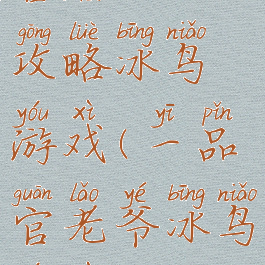 gōng lüè bīng niǎo
攻略冰鸟
yóu xì yī pǐn
游戏(一品
guān lǎo yé bīng niǎo
官老爷冰鸟